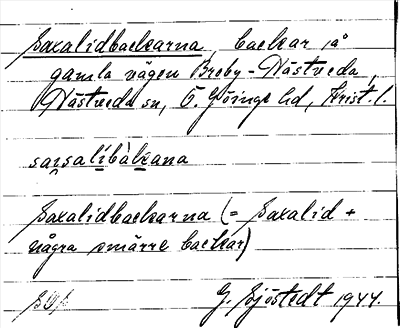 Saxalidbackarna, backar på
gamla vägen Breby - Nästveda,
Nästveda sn, Ö. Göinge hd, Krist. l.
sarsalíbàkana
Saxalidbackarna (= Saxalid +
några smärre backar)
G. Sjöstedt 1944.